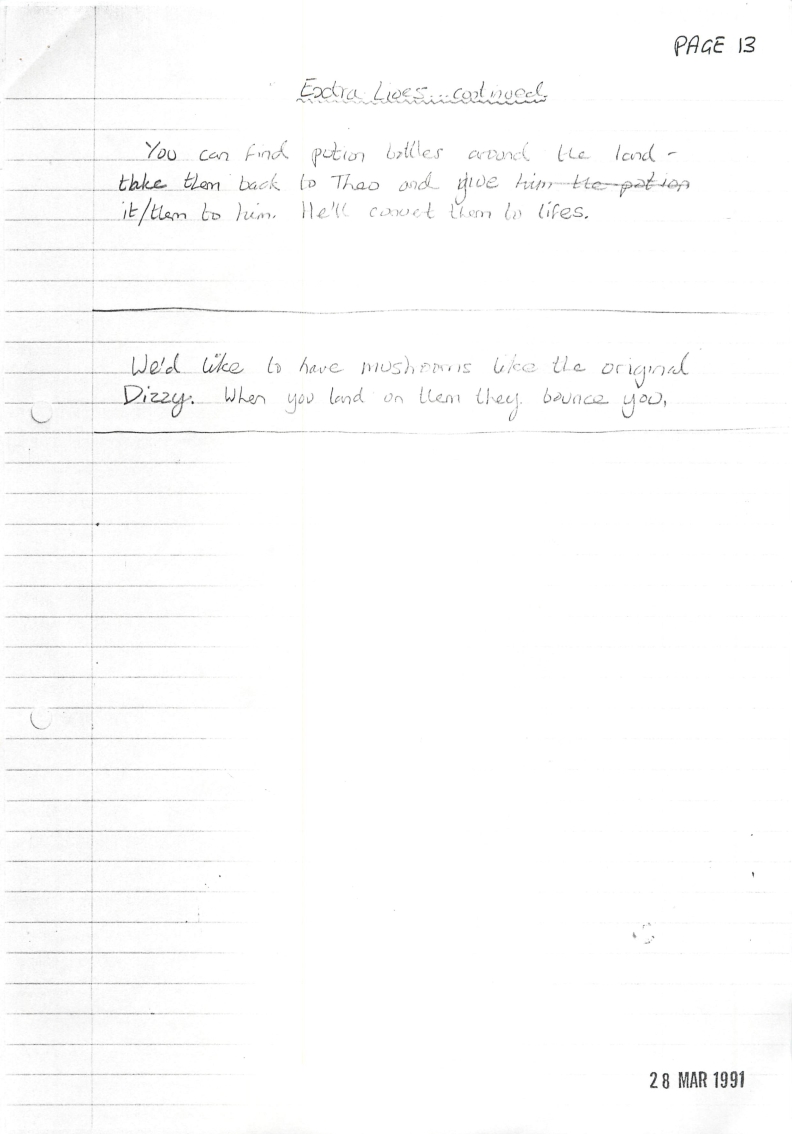 PAGE 13
Extra Lives... continued.
You can find potion bottles around the land -
take them back to Theo and give him the potion
it/them to him. He'll convet them to lifes.
We'd like to have mushrooms like the original
Dizzy. When you land on them they bounce you.
28 MAR 1991